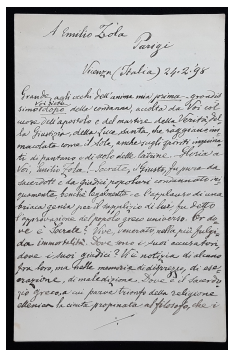 A Emilio Zola
Parigi
Vicenza (Italia) 24-2-98
Grande, agli occhi dell'anima mia, prima – grandis
simo Voi siete
dopo della condanna, accolta da Voi col
cuore dell'apostolo e del martire della Verità, del
la Giustizia, della luce santa, che raggiano im
macolata come il sole, anche sugli
di pantano e di del latrine. Gloria a
Voi, Emilio Zola! Socrate, il Giusto, fu pure da
sacerdoti e da giudici condannato in
nocente, anche l'applauso di una
genia per il supplizio di lui, fu detto
l'approvazione del popolo greco universo. Or do
ve è Socrate? Vive, venerato nella più fulgi
da immortalità. Dove sono i suoi accusatori,
dove i suoi giudici? V'è notizia di alcuno
fra loro, ma nella memoria di disprezzo, di ese
crazione, di maledizione. Dov'è il sacerdo
zio greco, a cui parve trionfo della religione
ellenica la cicuta propinata al filosofo, che i